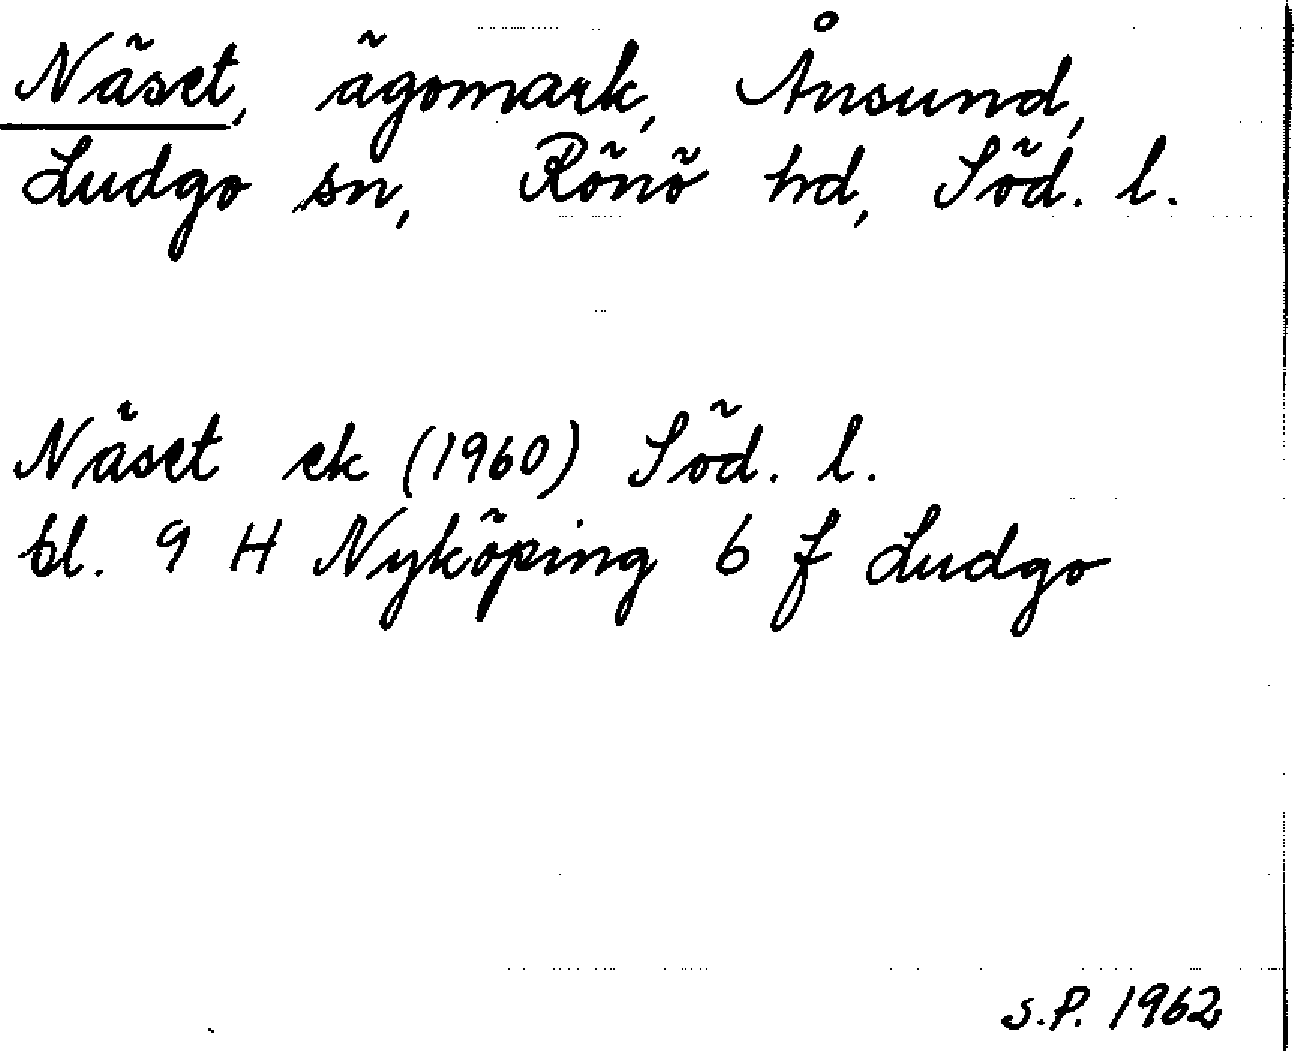 Näset, ägomark, Ånsund,
Ludgo sn, Rönö hd, Söd. l.
Näset ek (1960) Söd. l.
bl. 9 H Nyköping 6 f Ludgo
S.P. 1962